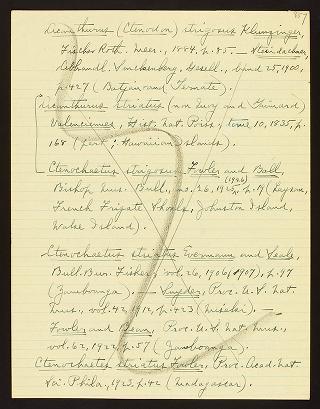 Acanthurus (Ctenodon) strigosus Klunzinger,
Fische Roth. Meer., 1884, p. 85. — Steindachner,
Abhandl. Senckenberg. Gesell., band 25, 1900,
p. 427 (Batjan and Ternate).
Acanthurus striatus (non Quoy and Gaimard)
Valenciennes, Hist. Nat. Poiss., tome 10, 1835, p.
168 (part; Hawaiian Islands).
Ctenochaetus strigosus Fowler and Ball,
Bishop Mus. Bull., no. 26, 1925, p. 19 (Laysan,
(1926)
French Frigate Shoals, Johnston Island,
Wake Island).
Ctenochaetus striatus Evermann and Seale,
Bull. Bur. Fisher., vol. 26, 1906 (1907), p. 97
(Zamboanga). — Snyder, Proc. U. S. Nat.
Mus., vol. 42, 1912, p. 423 (Misaki). —
Fowler and Bean, Proc. U. S. Nat. Mus.,
vol. 62, 1922, p. 57 (Zamboanga).
Ctenochaetus striatus Fowler, Proc. Acad. Nat.
Sci. Phila., 1923, p. 42 (Madagascar).